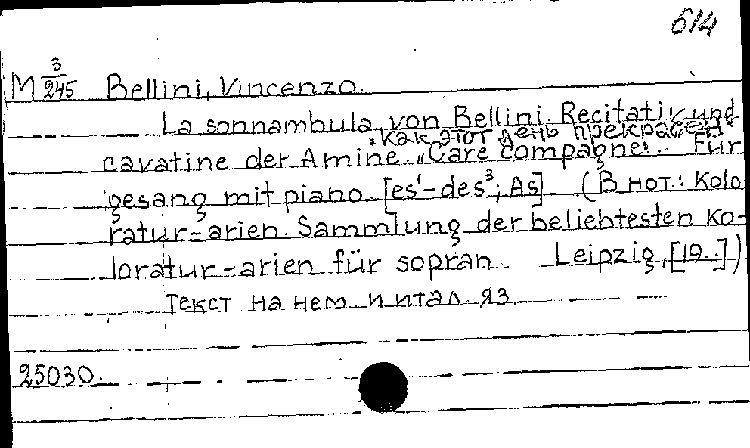 614
M 3/245 Bellini, Vincenzo.
La sonnambula von Bellini. Recitativ und
"Как этот день прекрасен"
cavatine der Amine "Care compagne". Für
gesang mit piano [es¹-des³; As] (В нот.: Kolo
ratur-arien. Sammlung der beliebtesten Ko-
loratur-arien für sopran. Leipzig, [19..])
Текст на нем. и итал. яз.
25030.